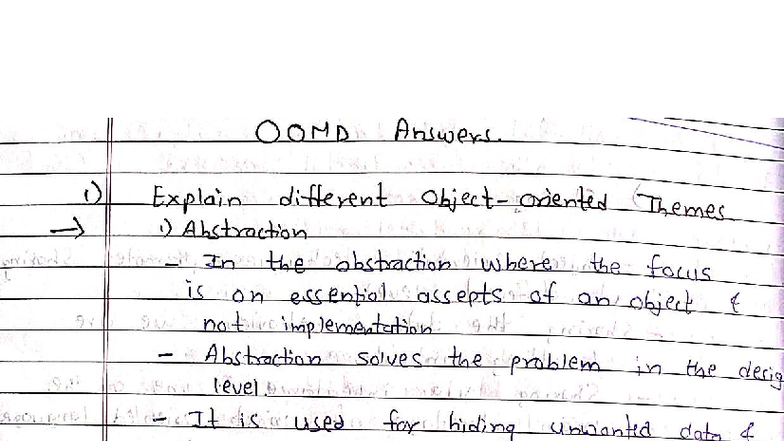 OOMD Answers.
1) Explain different Object-oriented Themes
→ 1) Abstraction
- In the abstraction where the focus
is on essential assepts of an object &
not implementation
- Abstraction solves the problem in the desig
level.
- It is used for hiding unwanted data &